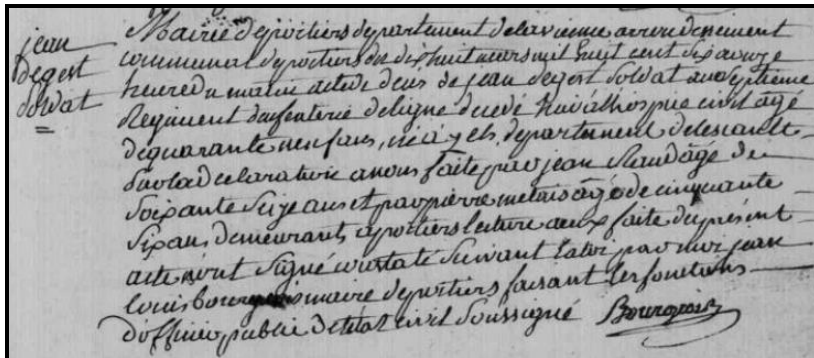 jean
degest
soldat
Mairie de poitiers departement de la vienne arrondissement
communal de poitiers du dix huit mars mil huit cent six a onze
heures du matin acte de deces de jean degest soldat au
Regiment d'infenterie de ligne decedé hier a l'hospice civil agé
de quarante neuf ans, né a departement de lescault
Sur la declaration a nous faite par jean agé de
Soixante Seize ans et par pierre metais agé de cinquante
Six ans, demeurants a poitiers lecture a eux faite du présent
acte n'ont Signé constaté Suivant la loi par moi jean
louis bourgeois maire de poitiers faisant les fonctions
d'officier public de l'etat civil Soussigné Bourgeois